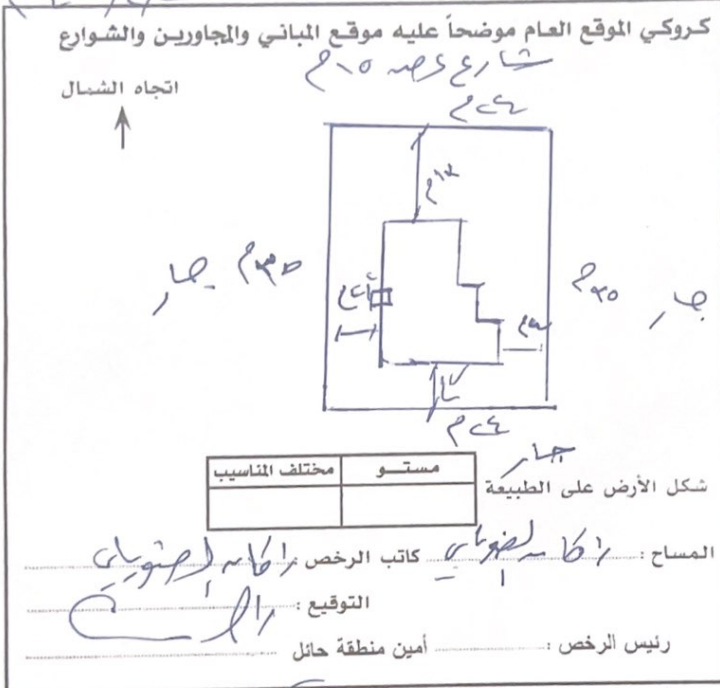 كروكي الموقع العام موضحاً عليه موقع المباني والمجاورين والشوارع
شارع عرضه ١٥م
اتجاه الشمال
٢٤م
جار ٣٥م
٣٥م جار
٢٤م
جار
شكل الأرض على الطبيعة
مستو مختلف المناسيب
المساح : راكان كاتب الرخص : راكان
التوقيع :
رئيس الرخص : أمين منطقة حائل